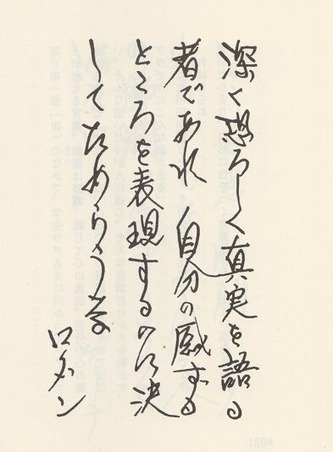 深く恐ろしく真実を語る
者であれ 自分の感ずる
ところを表現するのに決
してためらうな
ロダン